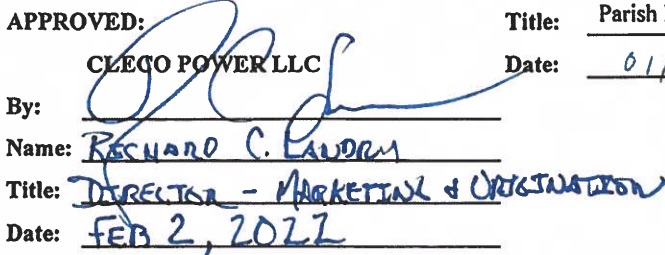 APPROVED:
CLECO POWER LLC
By:
Name: RICHARD C. LANDRY
Title: DIRECTOR - MARKETING & ORIGINATION
Date: FEB 2, 2022
Title: Parish
Date: 01/